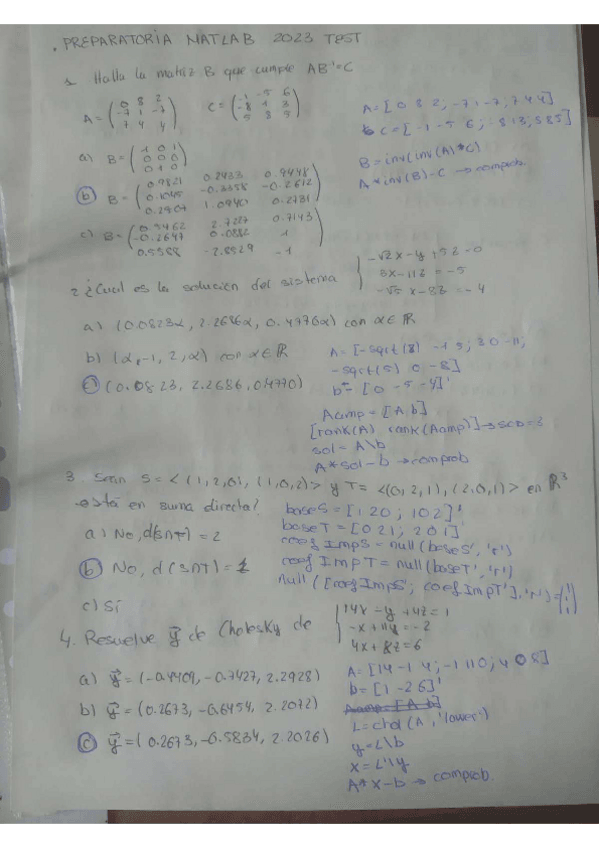 . PREPARATORIA MATLAB 2023 TEST
1. Halla la matriz B que cumple AB'=C
A = ( 0 8 2
-7 1 -7
7 4 4 )
C = ( -1 -5 6
-8 1 3
5 8 5 )
A=[0 8 2, -7 1 -7; 7 4 4]
C=[-1 -5 6; -8 1 3; 5 8 5]
a) B = ( -1 0 1
0 0 0
0 1 0 )
B = inv(inv(A)*C)
A*inv(B)-C → comprob.
b) B = ( 0.9821 0.2433 0.9448
0.1045 -0.3358 -0.2612
0.2904 1.0940 0.2731 )
c) B = ( 0.5462 2.7227 0.7143
-0.2647 0.0882 1
0.5588 -2.8529 -1 )
2. ¿Cual es la solucion del sistema
{ -√2x-y+5z=0
3x-11z = -5
-√5 x-8z = -4
a) (0.0823α, 2.2686α, 0.4770α) con α∈ℝ
b) (α, -1, 2, α) con α∈ℝ
c) (0.0823, 2.2686, 0.4770)
A = [-sqrt(2) -1 5; 3 0 -11;
-sqrt(5) 0 -8]
b = [0 -5 -4]'
Aamp = [A b]
[rank(A) rank(Aamp)] → SCD=3
sol = A\b
A*sol-b → comprob
3. Sean S=<(1,2,0), (1,0,2)> y T= <(0,2,1), (2,0,1)> en ℝ³
¿está en suma directa?
a) No, d(S∩T) = 2
b) No, d(S∩T) = 1
c) Sí
baseS = [1 2 0; 1 0 2]'
baseT = [0 2 1; 2 0 1]'
coefImpS = null(baseS', 'r')
coefImpT = null(baseT', 'r')
null([coefImpS'; coefImpT'],'r')=(1 1 1)
4. Resuelve y⃗ de Cholesky de
{ 14x-y+4z=1
-x+11y=-2
4x+8z=6
a) y⃗ = (-0.4409, -0.7427, 2.2928)
b) y⃗ = (0.2673, -0.6454, 2.2072)
c) y⃗ = (0.2673, -0.5834, 2.2026)
A=[14 -1 4; -1 11 0; 4 0 8]
b=[1 -2 6]'
Aamp = [A b]
L=chol(A,'lower')
y=L\b
x=L'\y
A*x-b → comprob